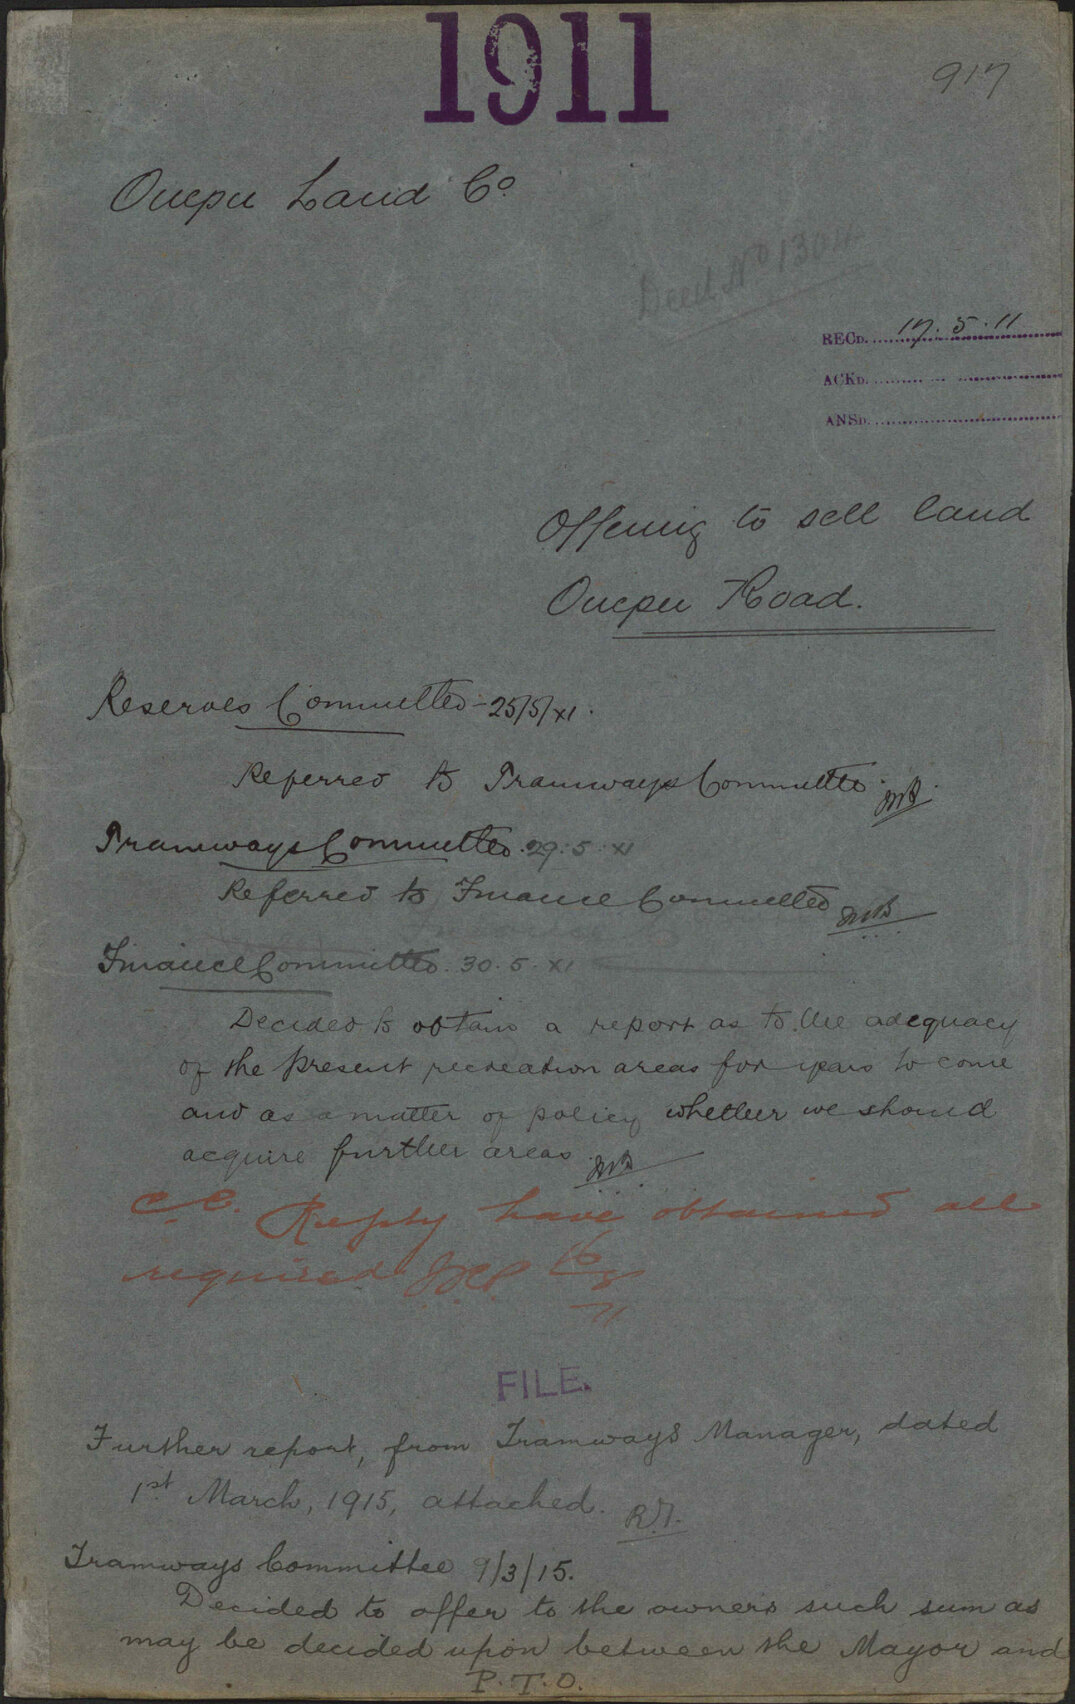 1911
917
Onepu Land Co
Deed No 1304
RECD. 17.5.11
ACKD.
ANSD.
Offering to sell land
Onepu Road.
Reserves Committee - 25/5/XI.
Referred to Tramways Committee.
Tramways Committee. 29.5.XI
Referred to Finance Committee
Finance Committee. 30.5.XI
Decided to obtain a report as to the adequacy
of the present recreation areas for years to come
and as a matter of policy whether we should
acquire further areas.
Reply have obtained all
required
FILE.
Further report, from Tramways Manager, dated
1st March, 1915, attached.
Tramways Committee 9/3/15.
Decided to offer to the owners such sum as
may be decided upon between the Mayor and
P.T.O.